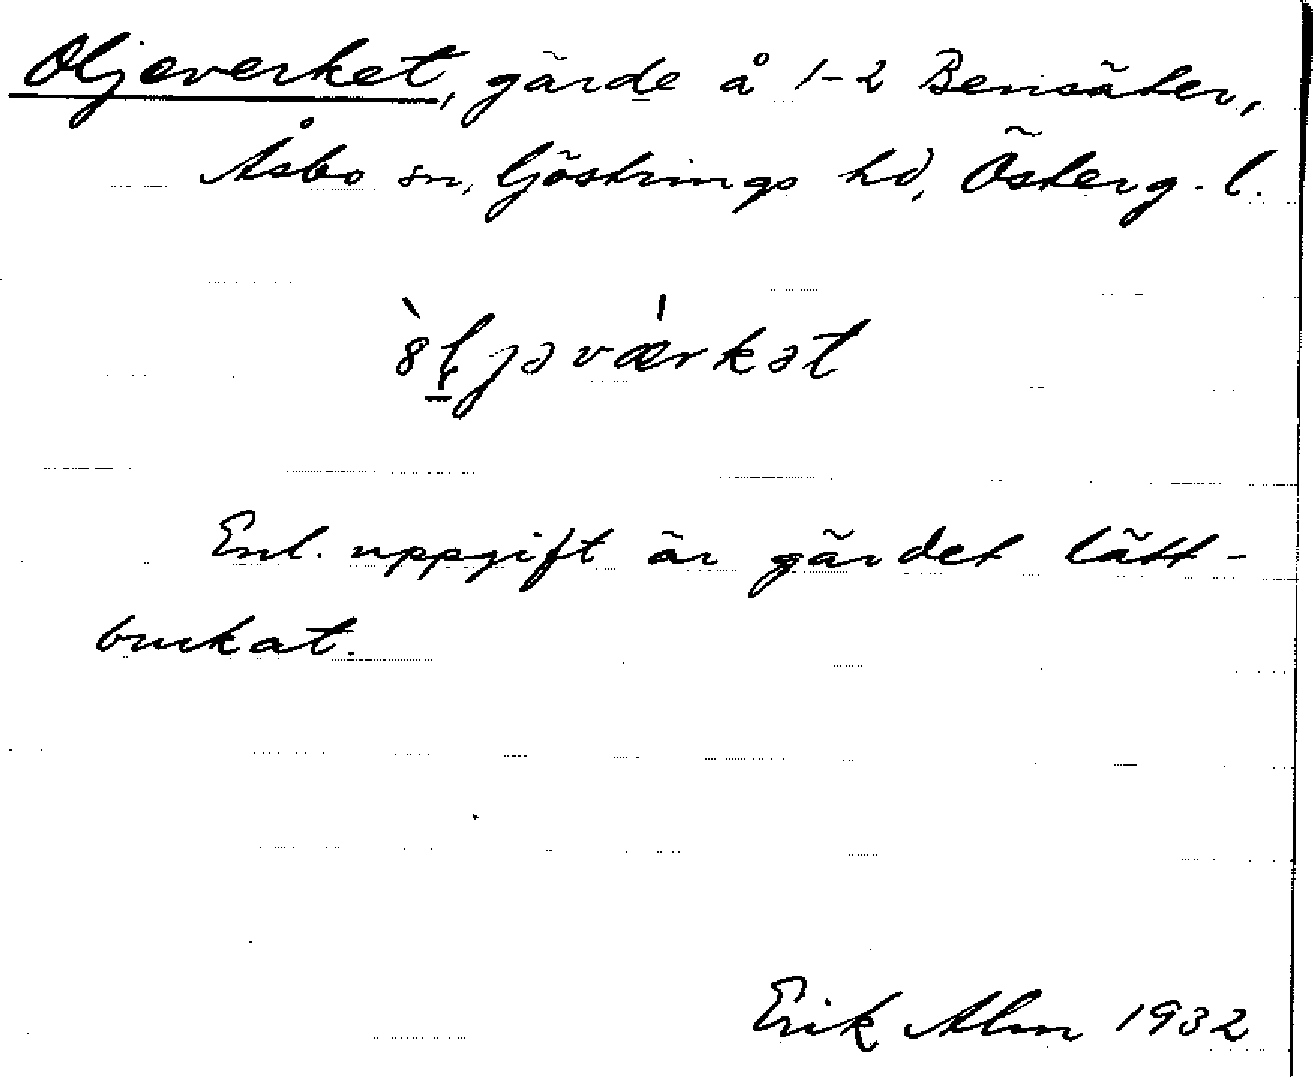 Oljeverket, gärde å 1-2 Bensäter,
Åsbo sn, Göstrings hd, Österg. l.
Enl. uppgift är gärdet lätt-
brukat.
Erik Alm 1932